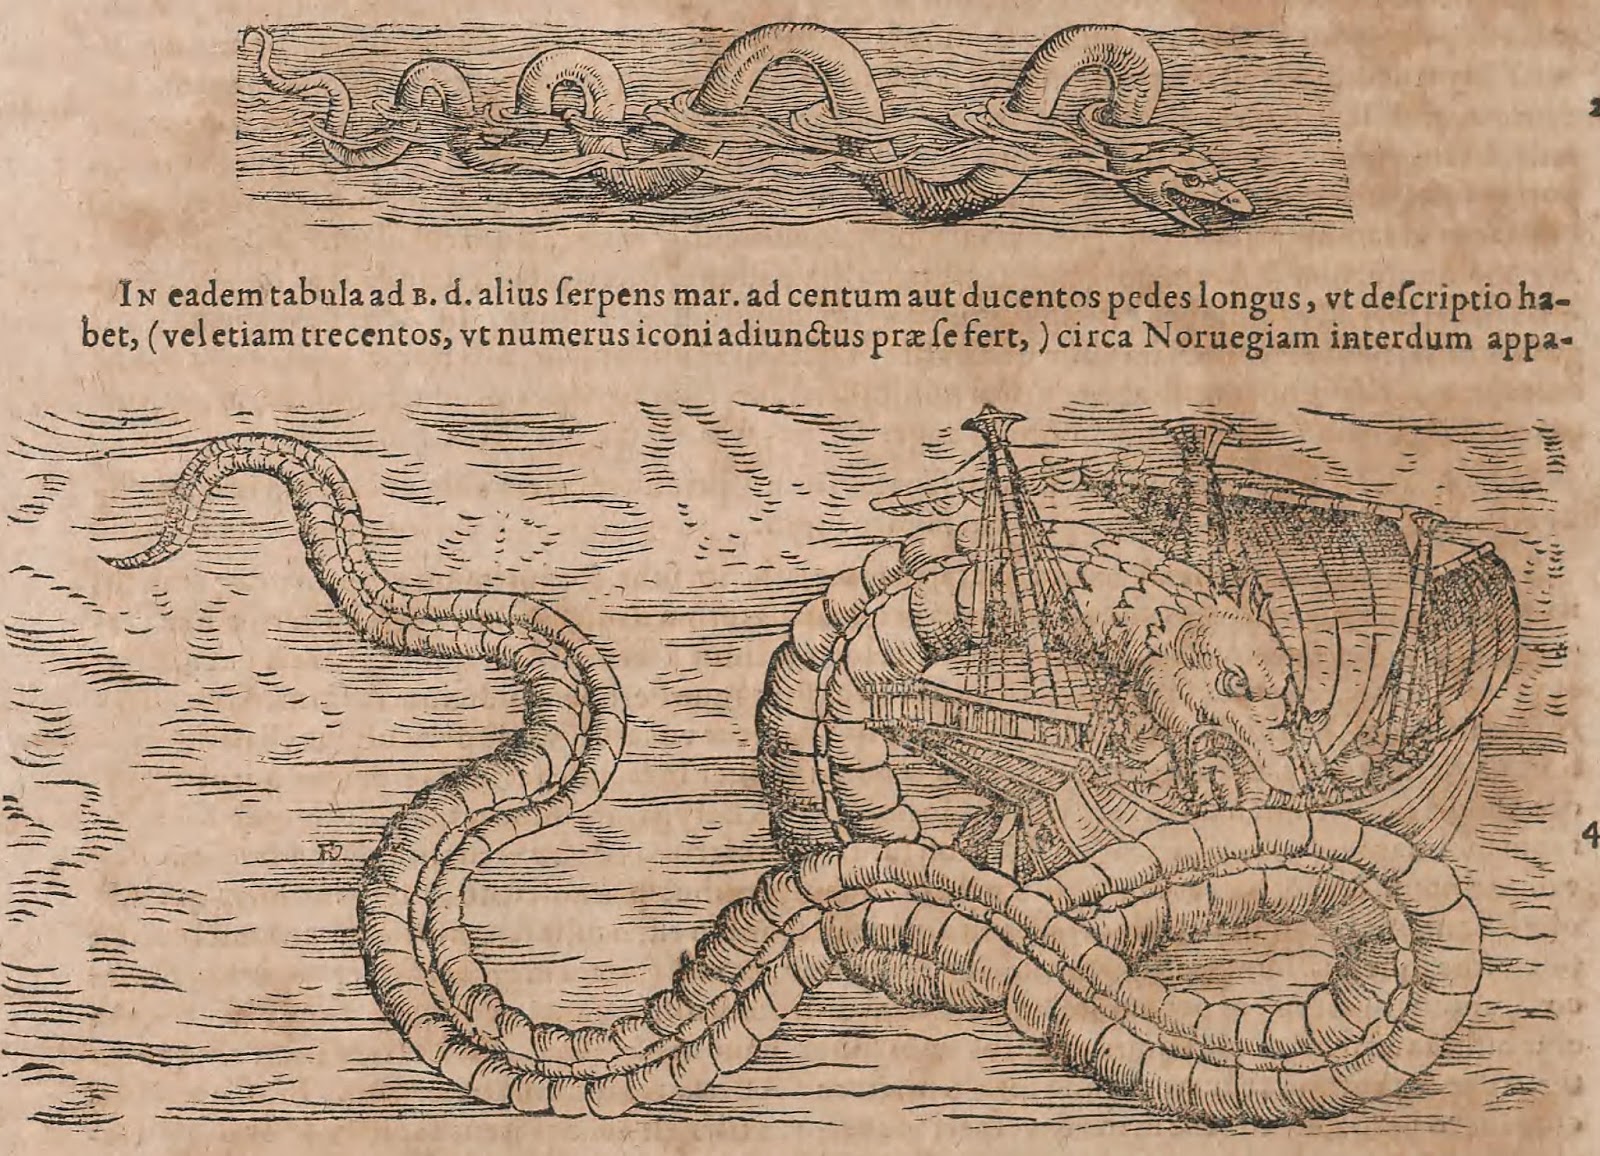 2
IN eadem tabula ad B. d. alius ſerpens mar. ad centum aut ducentos pedes longus, vt deſcriptio ha-
bet, (vel etiam trecentos, vt numerus iconi adiunctus præ ſe fert, ) circa Noruegiam interdum appa-
4